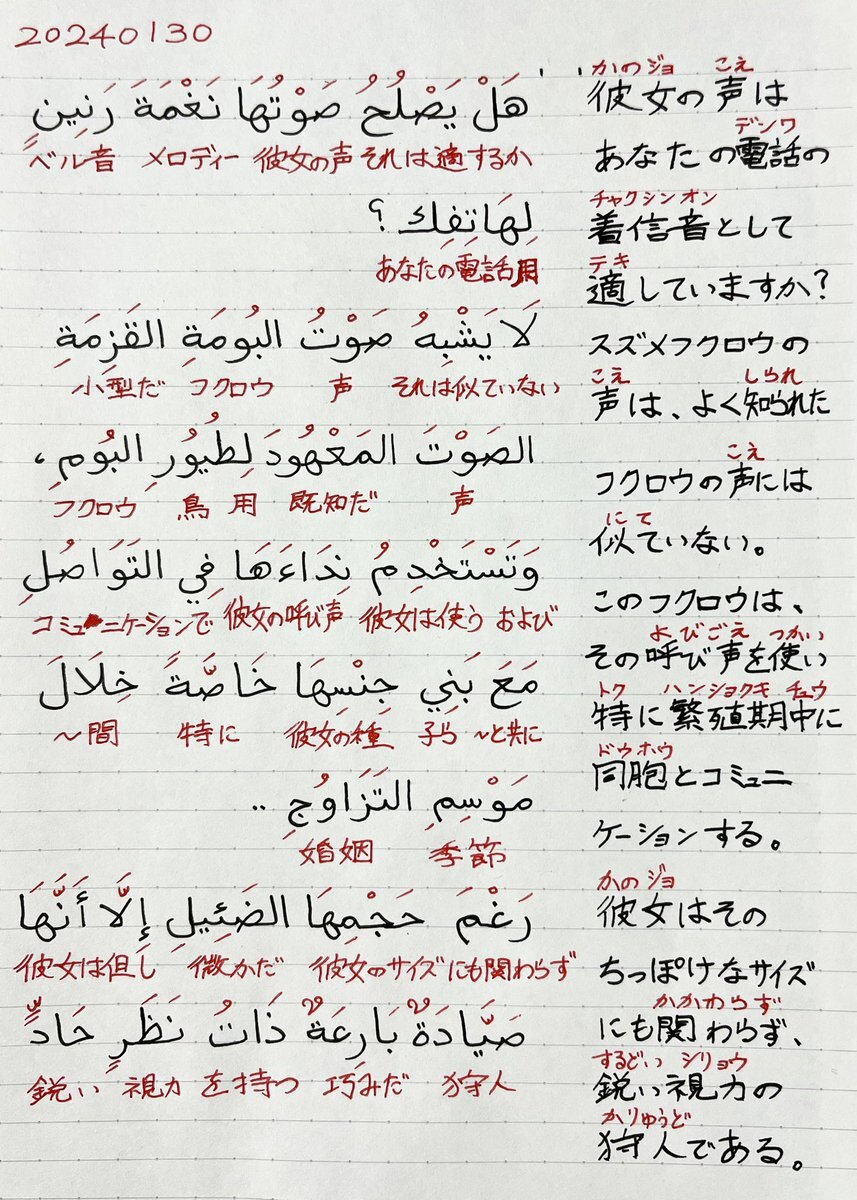 20240130
هَلْ يَصْلُحُ صَوْتُهَا نَغْمَةَ رَنِينٍ
ベル音 メロディー 彼女の声 それは適するか
لِهَاتِفِك؟
あなたの電話用
لَا يَشْبِهُ صَوْتُ البُومَةِ القَزمَةِ
小型だ フクロウ 声 それは似ていない
الصَوْتَ المَعْهُودَ لِطُيُورِ البُومِ،
フクロウ 鳥 用 既知だ 声
وَتَسْتَخْدِمُ نِدَاءَهَا فِي التَوَاصُلِ
コミュニケーションで 彼女の呼び声 彼女は使う および
مَعَ بَنِي جِنْسِهَا خَاصَّةً خِلَالَ
〜間 特に 彼女の種 子ら 〜と共に
مَوْسِمِ التَزَاوُجِ ..
婚姻 季節
رَغْمَ حَجْمِهَا الضَئِيلِ إِلَّا أَنَّهَا
彼女は但し 微かだ 彼女のサイズ にも関わらず
صَيَّادَةٌ بَارِعَةٌ ذَاتُ نَظَرٍ حَادٍّ
鋭い 視力 を持つ 巧みだ 狩人
かのジョ こえ
彼女の声は
デンワ
あなたの電話の
チャクシンオン
着信音として
テキ
適していますか?
スズメフクロウの
こえ しられ
声は、よく知られた
こえ
フクロウの声には
にて
似ていない。
このフクロウは、
よびごえ つかい
その呼び声を使い
トク ハンショクキ チュウ
特に繁殖期中に
ドウホウ
同胞とコミュニ
ケーションする。
かのジョ
彼女はその
ちっぽけなサイズ
かかわらず
にも関わらず、
するどい シリョウ
鋭い視力の
かりゅうど
狩人である。